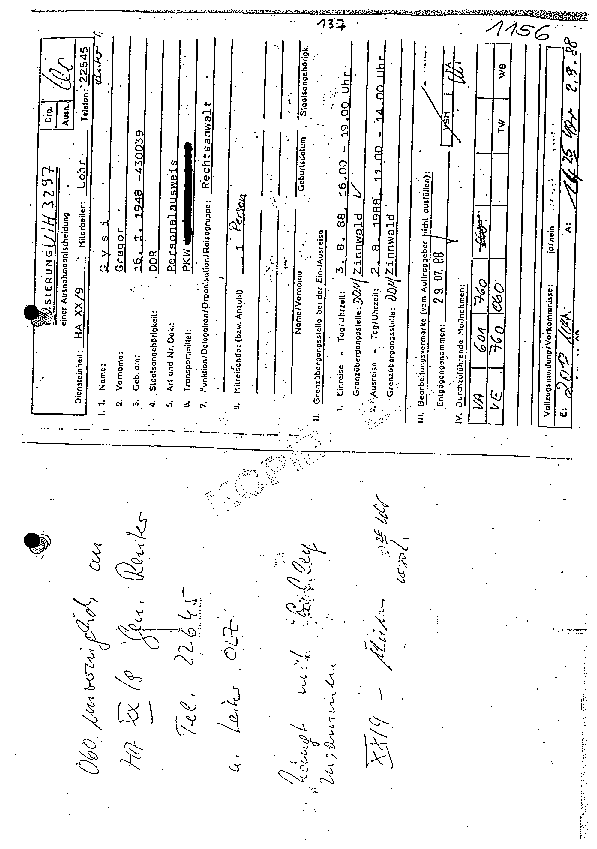 137
1156
VIH3297
einer Ausnahmentscheidung
Dring.
Diensteinheit: HA XX/9 Mitarbeiter: Lohr Telefon: 22545
I. 1. Name: Gysi
2. Vorname: Gregor
3. Geb. am: 16. 1. 1948 -430039
4. Staatsangehörigkeit: DDR
5. Art und Nr. Dok.: Personalausweis
6. Transportmittel: PKW
7. Funktion/Delegation/Organisation/Reisegruppe: Rechtsanwalt
8. Mitreisende (bzw. Anzahl) 1 Person
Name/Vorname Geburtsdatum Staatsangehörigk.
II. Grenzübergangsstelle bei der Ein-/Ausreise
1. Einreise – Tag/Uhrzeit: 3. 8. 88, 16.00 - 19.00 Uhr
Grenzübergangsstelle: Zinnwald
2. Ausreise – Tag/Uhrzeit: 2. 8. 1988, 11.00 - 14.00 Uhr
Grenzübergangsstelle: Zinnwald
III. Bearbeitungsvermerke (vom Auftraggeber nicht ausfüllen):
Entgegengenommen: 29.07.88 VSH
IV. Durchzuführende Maßnahmen:
VA 601 760
VE 760 060 TW WB
Vollzugsmeldung/Vorkommnisse: ja/nein
E: A: 2.8.88
KOPIE
Obo. unverzüglich an
HA XX/9 Gen. Reuter
Tel. 22645
u. Leiter OLZ
mit
XX/9 -